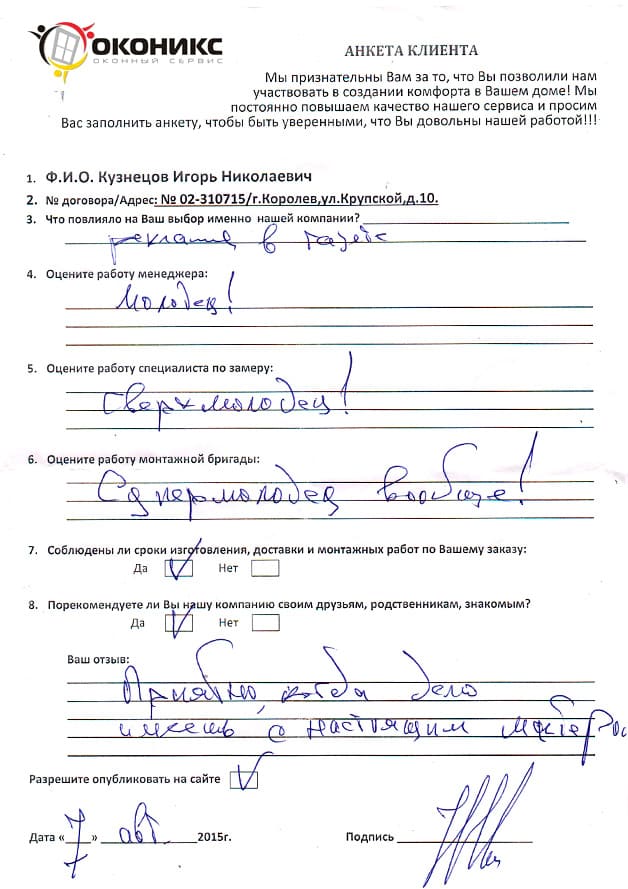 ОКОНИКС
ОКОННЫЙ СЕРВИС
АНКЕТА КЛИЕНТА
Мы признательны Вам за то, что Вы позволили нам
участвовать в создании комфорта в Вашем доме! Мы
постоянно повышаем качество нашего сервиса и просим
Вас заполнить анкету, чтобы быть уверенными, что Вы довольны нашей работой!!!
1. Ф.И.О. Кузнецов Игорь Николаевич
2. № договора/Адрес: № 02-310715/г.Королев,ул.Крупской,д.10.
3. Что повлияло на Ваш выбор именно нашей компании?
реклама в газете
4. Оцените работу менеджера:
Молодец!
5. Оцените работу специалиста по замеру:
Сверхмолодец!
6. Оцените работу монтажной бригады:
Супермолодец вообще!
7. Соблюдены ли сроки изготовления, доставки и монтажных работ по Вашему заказу:
Да Нет
8. Порекомендуете ли Вы нашу компанию своим друзьям, родственникам, знакомым?
Да Нет
Ваш отзыв:
Приятно, когда дело
имеешь с настоящим
Разрешите опубликовать на сайте
Дата «7» авг 2015г. Подпись